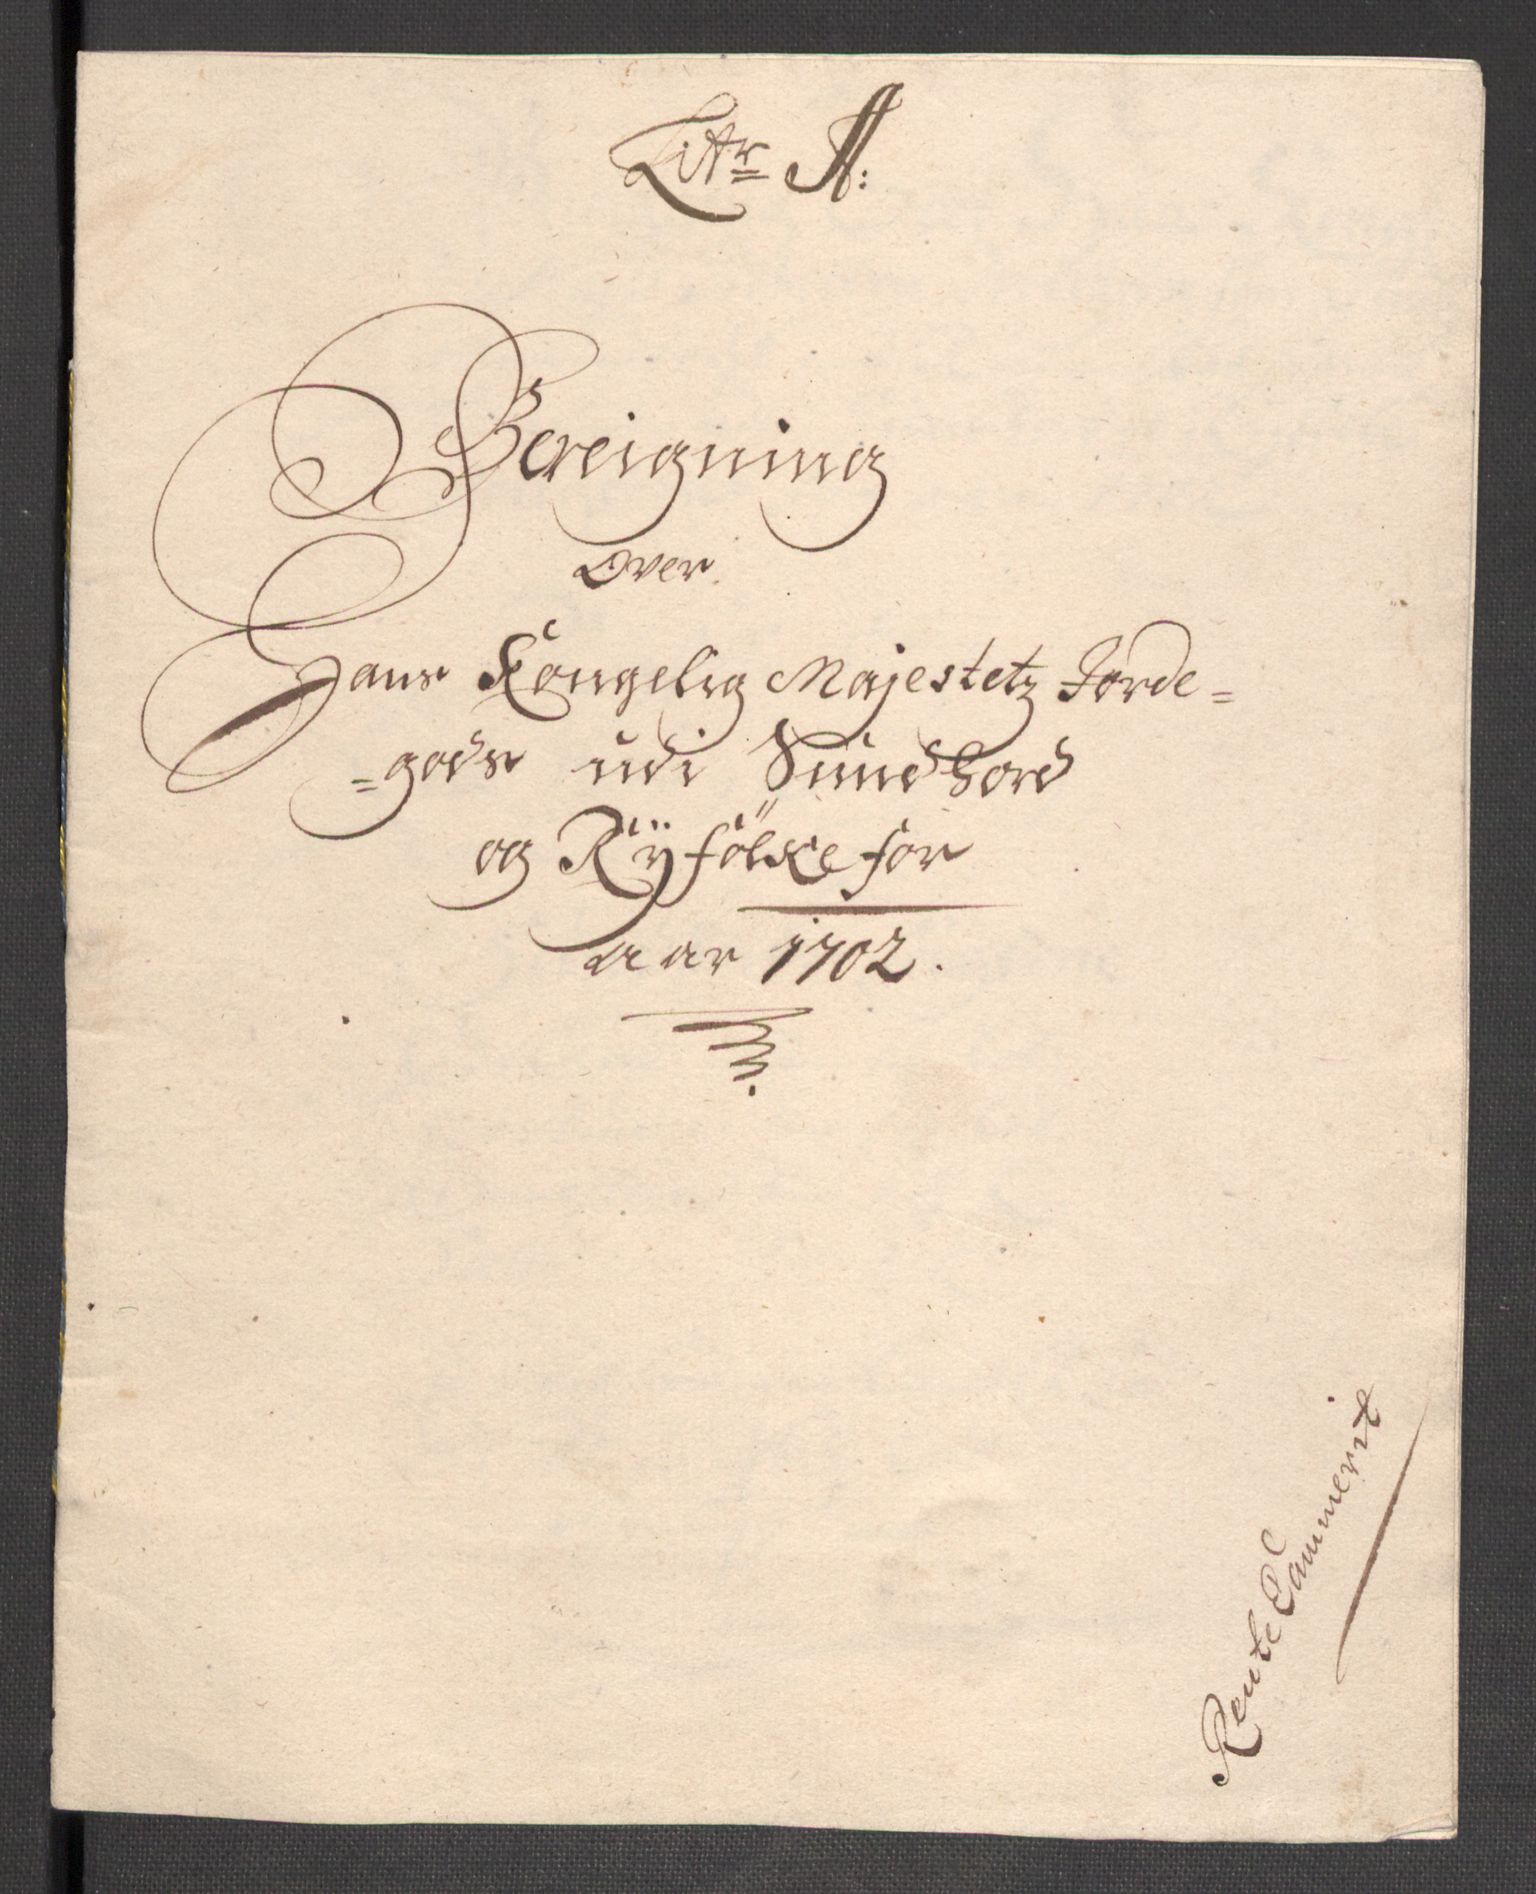 Litr A:
Bereigning
Over
Hans Kongelig Majestetz Jorde=
=gods udi Sundhord
og Rÿfölke for
aar 1702.
RenteCammerit